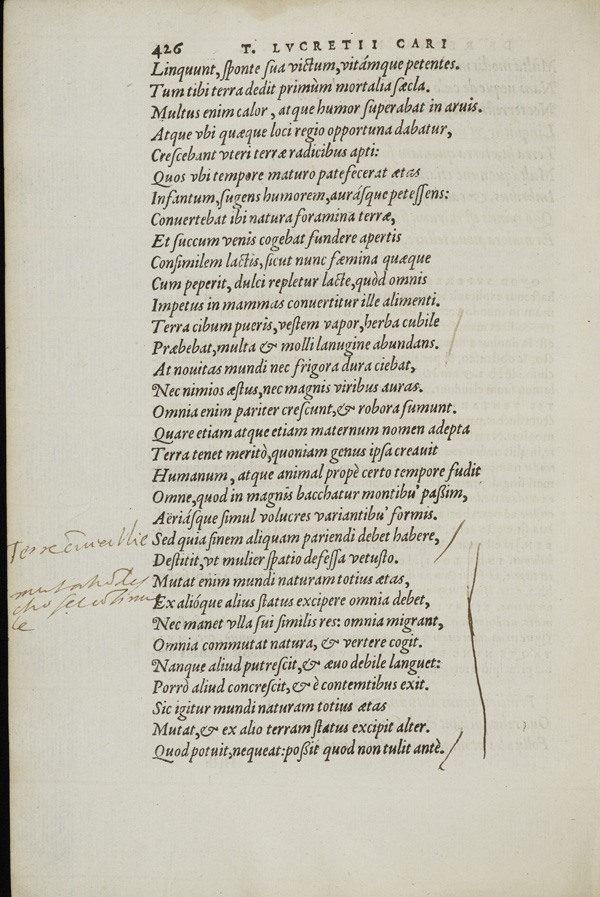 426 T. LVCRETII CARI
Linquunt, sponte sua victum, vitámque petentes.
Tum tibi terra dedit primùm mortalia sæcla.
Multus enim calor, atque humor superabat in aruis.
Atque vbi quæque loci regio opportuna dabatur,
Crescebant vteri terræ radicibus apti:
Quos vbi tempore maturo patefecerat ætas
Infantum, sugens humorem, aurásque petessens:
Conuertebat ibi natura foramina terræ,
Et succum venis cogebat fundere apertis
Consimilem lactis, sicut nunc fæmina quæque
Cum peperit, dulci repletur lacte, quòd omnis
Impetus in mammas conuertitur ille alimenti.
Terra cibum pueris, vestem vapor, herba cubile
Præbebat, multa & molli lanugine abundans.
At nouitas mundi nec frigora dura ciebat,
Nec nimios æstus, nec magnis viribus auras.
Omnia enim pariter crescunt, & robora sumunt.
Quare etiam atque etiam maternum nomen adepta
Terra tenet meritò, quoniam genus ipsa creauit
Humanum, atque animal propè certo tempore fudit
Omne, quod in magnis bacchatur montibu' paßim,
Aëriásque simul volucres variantibu' formis.
Sed quia finem aliquam pariendi debet habere,
Destitit, vt mulier spatio defessa vetusto.
Mutat enim mundi naturam totius ætas,
Ex alióque alius status excipere omnia debet,
Nec manet vlla sui similis res: omnia migrant,
Omnia commutat natura, & vertere cogit.
Nanque aliud putrescit, & æuo debile languet:
Porrò aliud concrescit, & è contemtibus exit.
Sic igitur mundi naturam totius ætas
Mutat, & ex alio terram status excipit alter.
Quod potuit, nequeat: poßit quod non tulit antè.